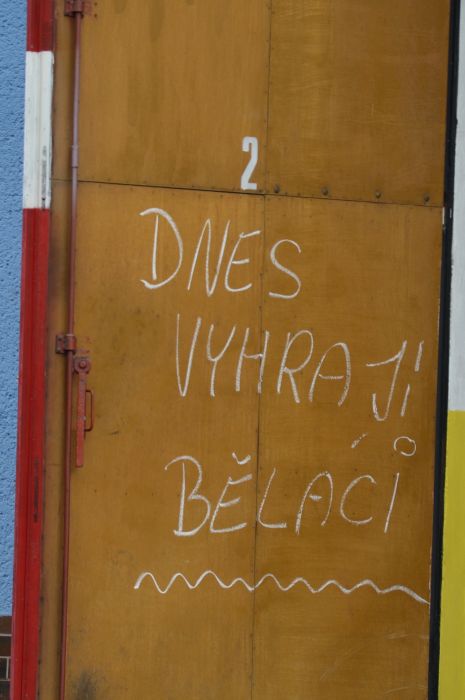 2
DNES
VYHRAJÍ
BĚLÁCI